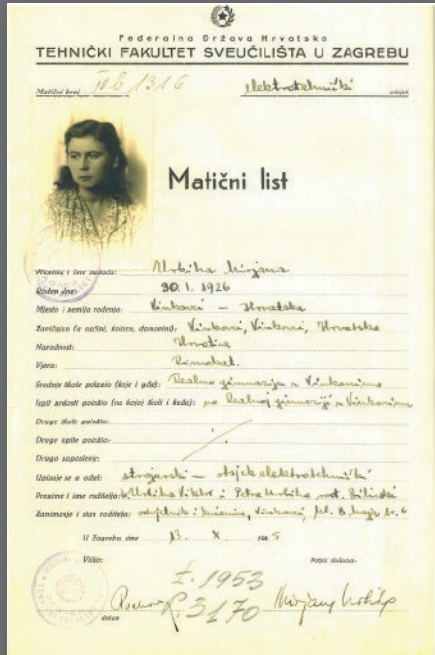 Federalna Država Hrvatska
TEHNIČKI FAKULTET SVEUČILIŠTA U ZAGREBU
Matični broj IVb 1316 elektrotehnički odsjek
Matični list
Prezime i ime slušača: Urbiha Mirjana
Rođen dne: 30. I. 1926
Mjesto i zemlja rođenja: Vinkovci – Hrvatska
Zavičajan (u općini, kotaru, domovini): Vinkovci, Vinkovci, Hrvatska
Narodnost: Hrvatica
Vjera: Rimokat.
Srednje škole polazio (koje i gdje): Realnu gimnaziju u Vinkovcima
Ispit zrelosti položio (na kojoj školi i kada): na Realnoj gimnaziji u Vinkovcima
Druge škole polazio:
Druge ispite položio:
Drugo zaposlenje:
Upisuje se u odjel: strojarski – odsjek elektrotehnički
Prezime i ime roditelja: Urbiha Viktor i Petra Urbiha rođ. Bilinski
Zanimanje i stan roditelja: Vinkovci, Ul. 8 br. 6
U Zagrebu, dne 13. X. 1945
Vidio: Potpis slušača:
I. 1953
R. 3170
Mirjana Urbiha
dekan